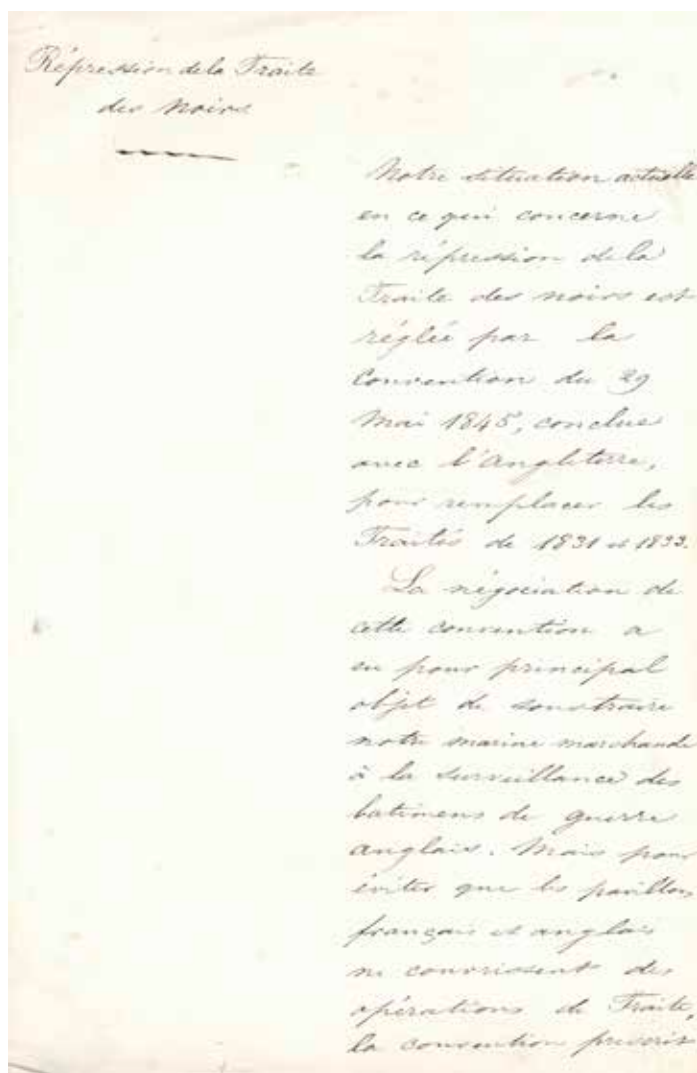 Répression de la Traite
des Noirs
Notre situation actuelle
en ce qui concerne
la répression de la
Traite des noirs est
réglée par la
Convention du 29
Mai 1845, conclue
avec l'Angleterre,
pour remplacer les
Traités de 1831 et 1833.
La négociation de
cette convention a
eu pour principal
objet de soustraire
notre marine marchande
à la surveillance des
batimens de guerre
anglais. Mais pour
éviter que les pavillons
français et anglais
ne couvrissent des
opérations de Traite,
la convention prescrit